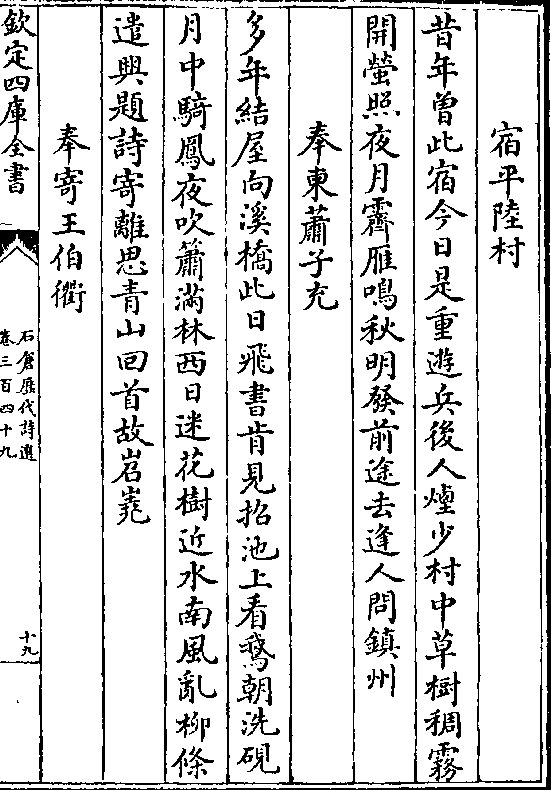 宿平陸村
昔年曽此宿今日是重遊兵後人煙少村中草樹稠霧
開螢照夜月霽雁鳴秋明發前途去逢人問鎮州
奉柬蕭子充
多年結屋向溪橋此日飛書肯見招池上看鵞朝洗硯
月中騎鳳夜吹簫滿林西日迷花樹近水南風亂柳條
遣興題詩寄離思青山回首故岧嶤
奉寄王伯衢
欽定四庫全書
石倉歷代詩選
卷三百四十九
十九